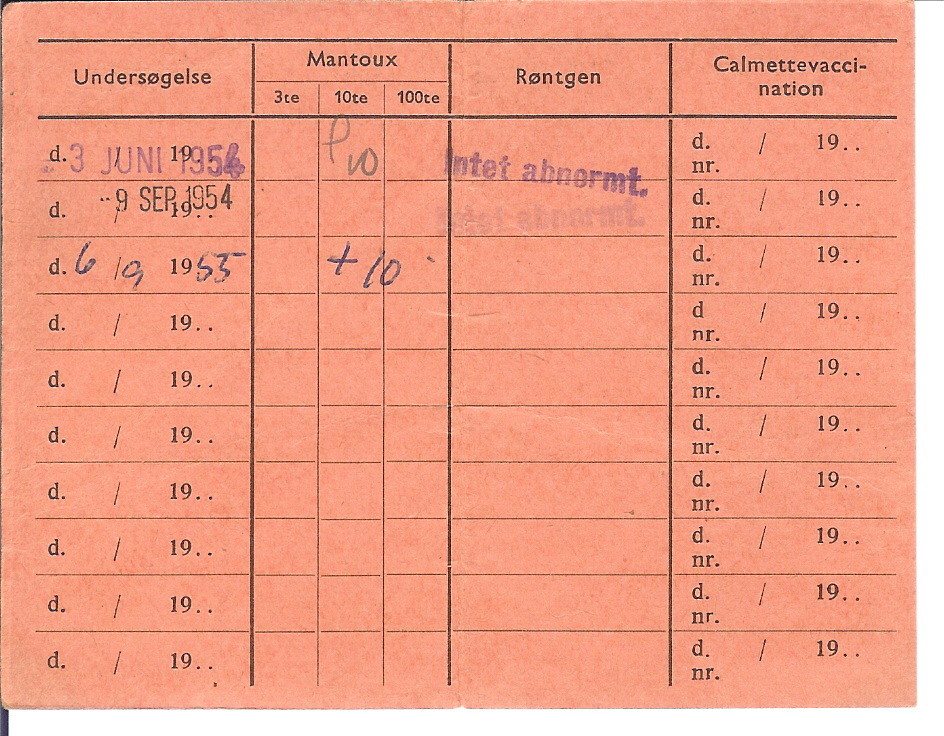 Undersøgelse Mantoux Røntgen Calmettevacci-
nation
3te 10te 100te
d. 3 / JUNI 1954 P 10 Intet abnormt. d. / 19..
nr.
d. - 9 / SEP. 1954 Intet abnormt. d. / 19..
nr.
d. 6 / 9 1955 + 10 d. / 19..
nr.
d. / 19.. d / 19..
nr.
d. / 19.. d. / 19..
nr.
d. / 19.. d. / 19..
nr.
d. / 19.. d. / 19..
nr.
d. / 19.. d. / 19..
nr.
d. / 19.. d. / 19..
nr.
d. / 19.. d. / 19..
nr.